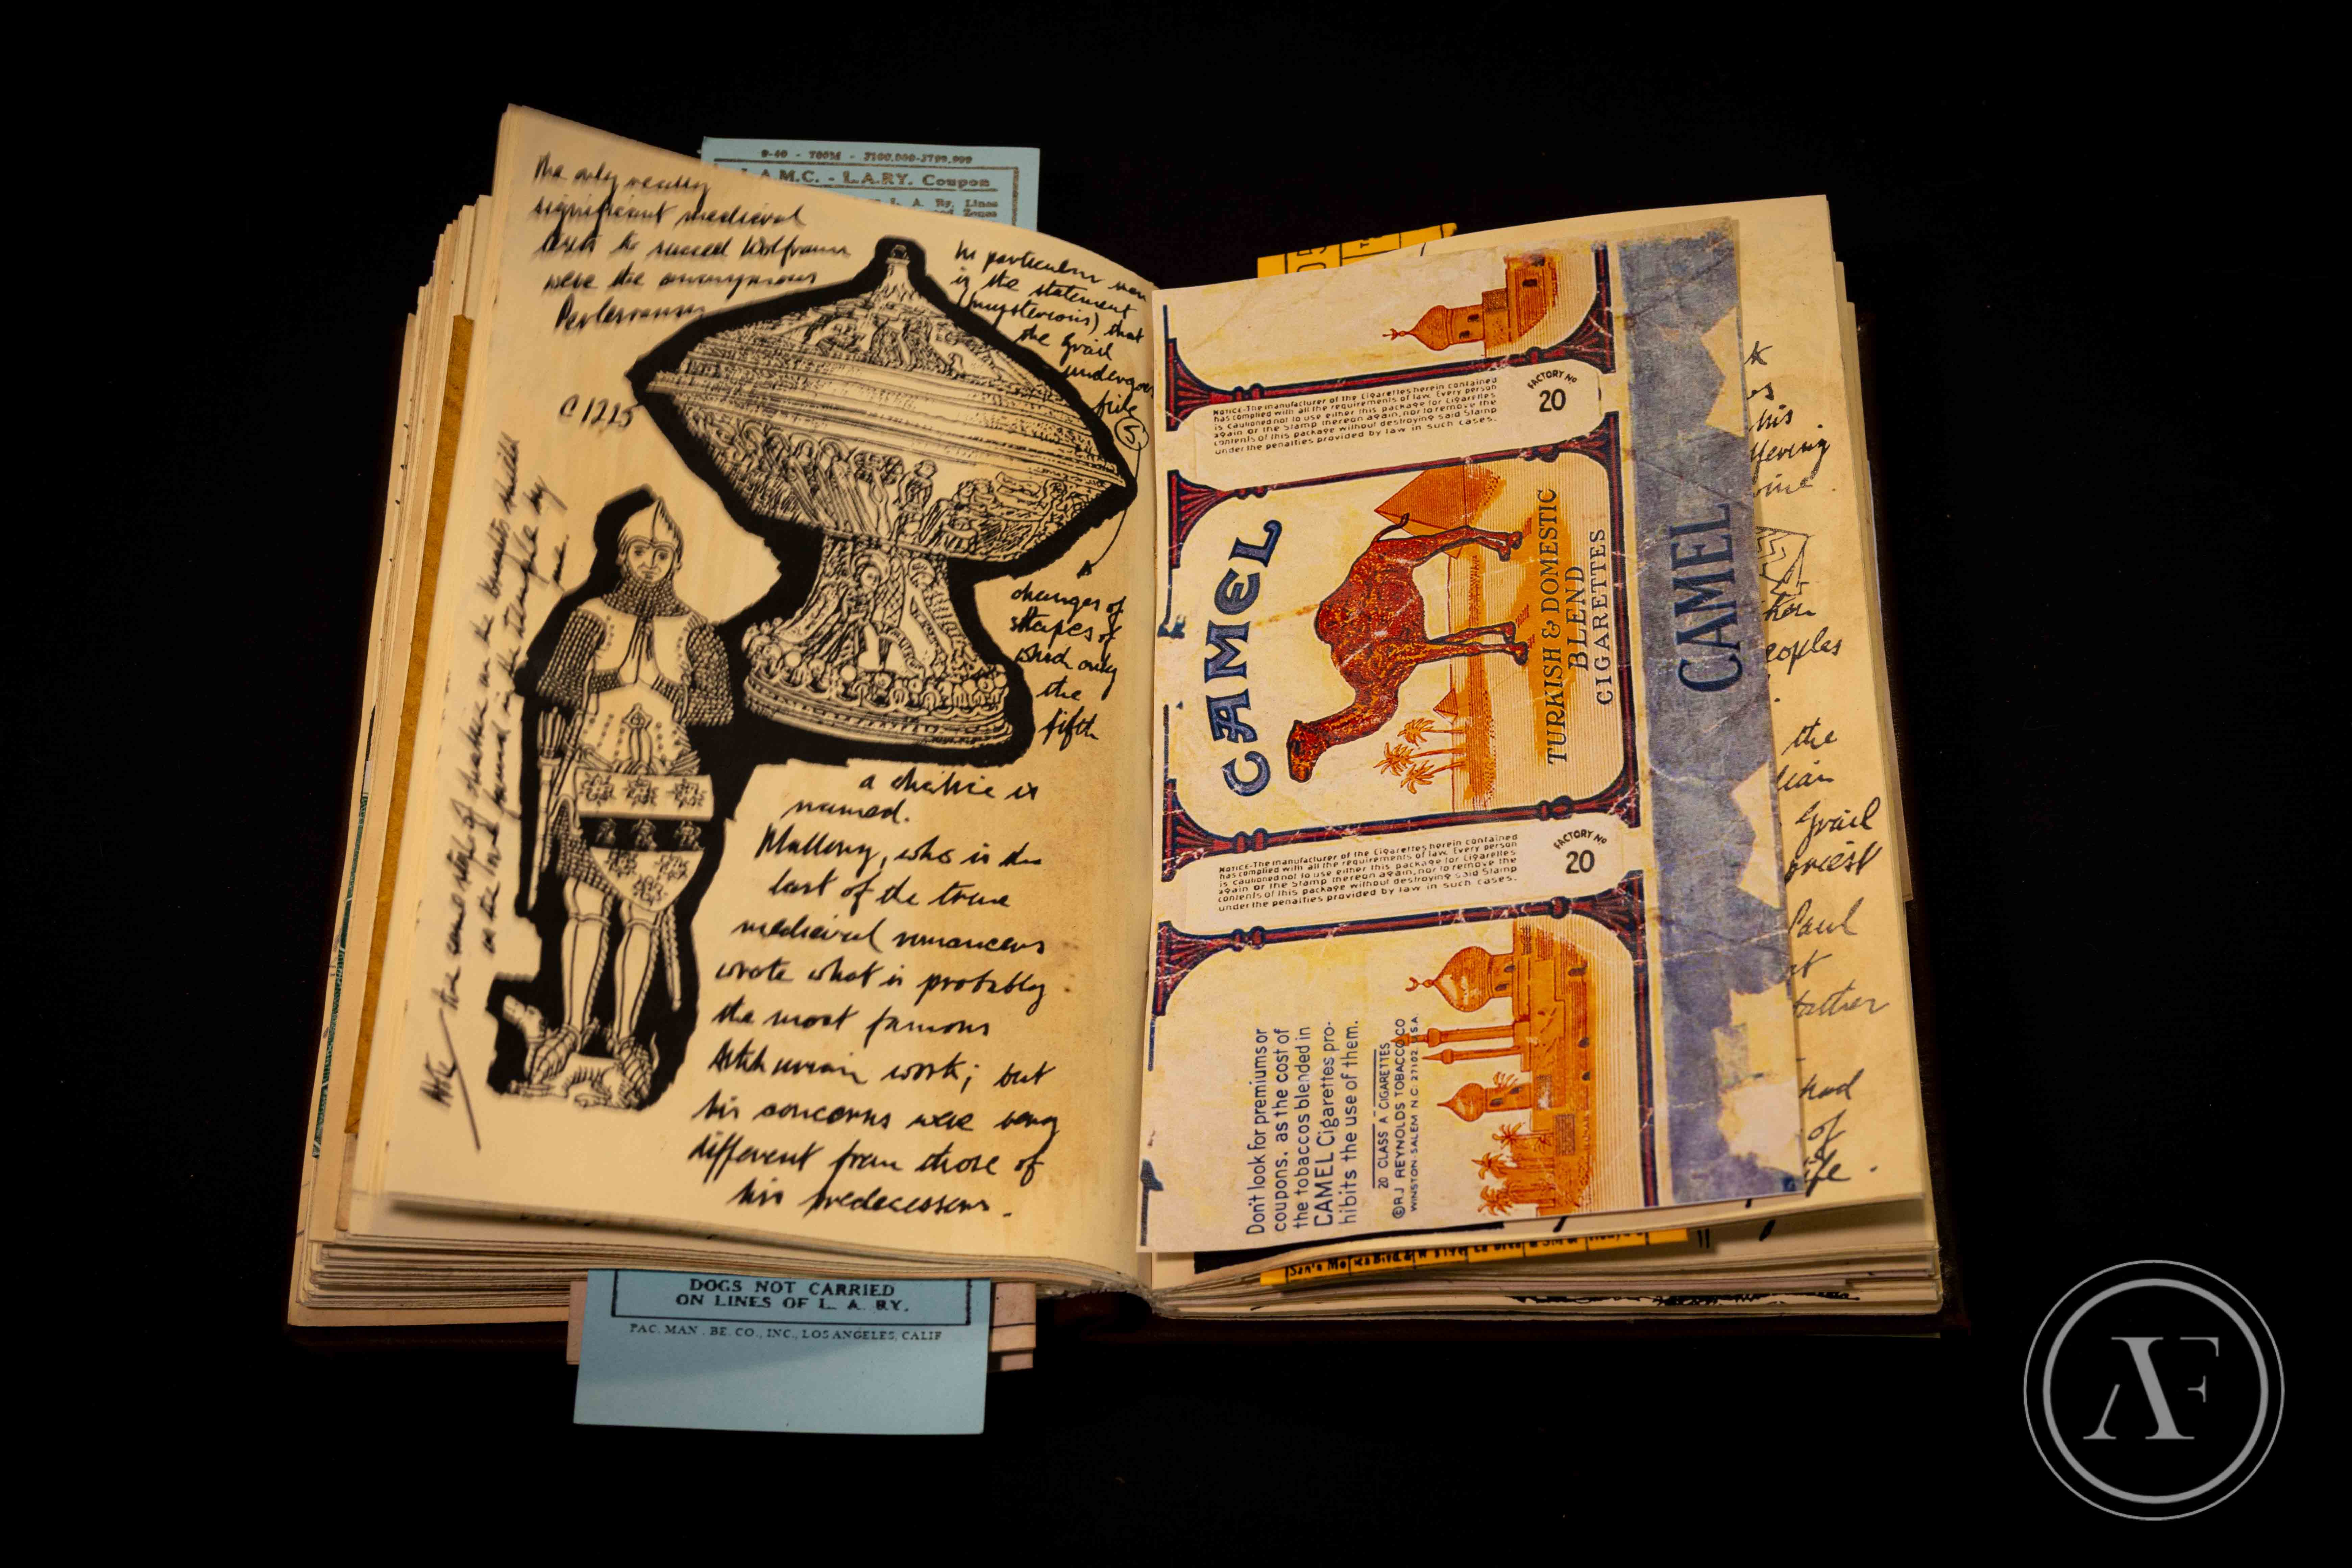 9-40 - 700M - J100,000-J799,999
L.A.M.C. - L.A.RY. Coupon
L. A. Ry. Lines
Zones
The only really
significant medieval
texts to succeed Wolfram
were the anonymous
Perlesvaus
C 1225
In particular
is the statement
(mysterious) that
the Grail
undergoes
five
5
changes of
shapes of
which only
the
fifth
a chalice is
named.
Mallory, who is the
last of the true
medieval romancers
wrote what is probably
the most famous
Arthurian work; but
his concerns were very
different from those of
his predecessors.
Note the same style of chalice on the knights shield
as the one found in the temple by
me.
DOGS NOT CARRIED
ON LINES OF L. A. RY.
PAC. MAN. BE. CO., INC., LOS ANGELES, CALIF
NOTICE-The manufacturer of the Cigarettes herein contained
has complied with all the requirements of law. Every person
is Cautioned not to use either this package for Cigarettes
again or the Stamp thereon again, nor to remove the
contents of this package without destroying said Stamp
under the penalties provided by law in such cases.
FACTORY No
20
CAMEL
TURKISH & DOMESTIC
BLEND
CIGARETTES
CAMEL
NOTICE-The manufacturer of the Cigarettes herein contained
has complied with all the requirements of law. Every person
is Cautioned not to use either this package for Cigarettes
again or the Stamp thereon again, nor to remove the
contents of this package without destroying said Stamp
under the penalties provided by law in such cases.
FACTORY No
20
Don't look for premiums or
coupons, as the cost of
the tobaccos blended in
CAMEL Cigarettes pro-
hibits the use of them.
20 CLASS A CIGARETTES
©RJ REYNOLDS TOBACCO CO
WINSTON-SALEM N.C. 27102 U.S.A.
his
the
Grail
priest
Paul
had
of
AF